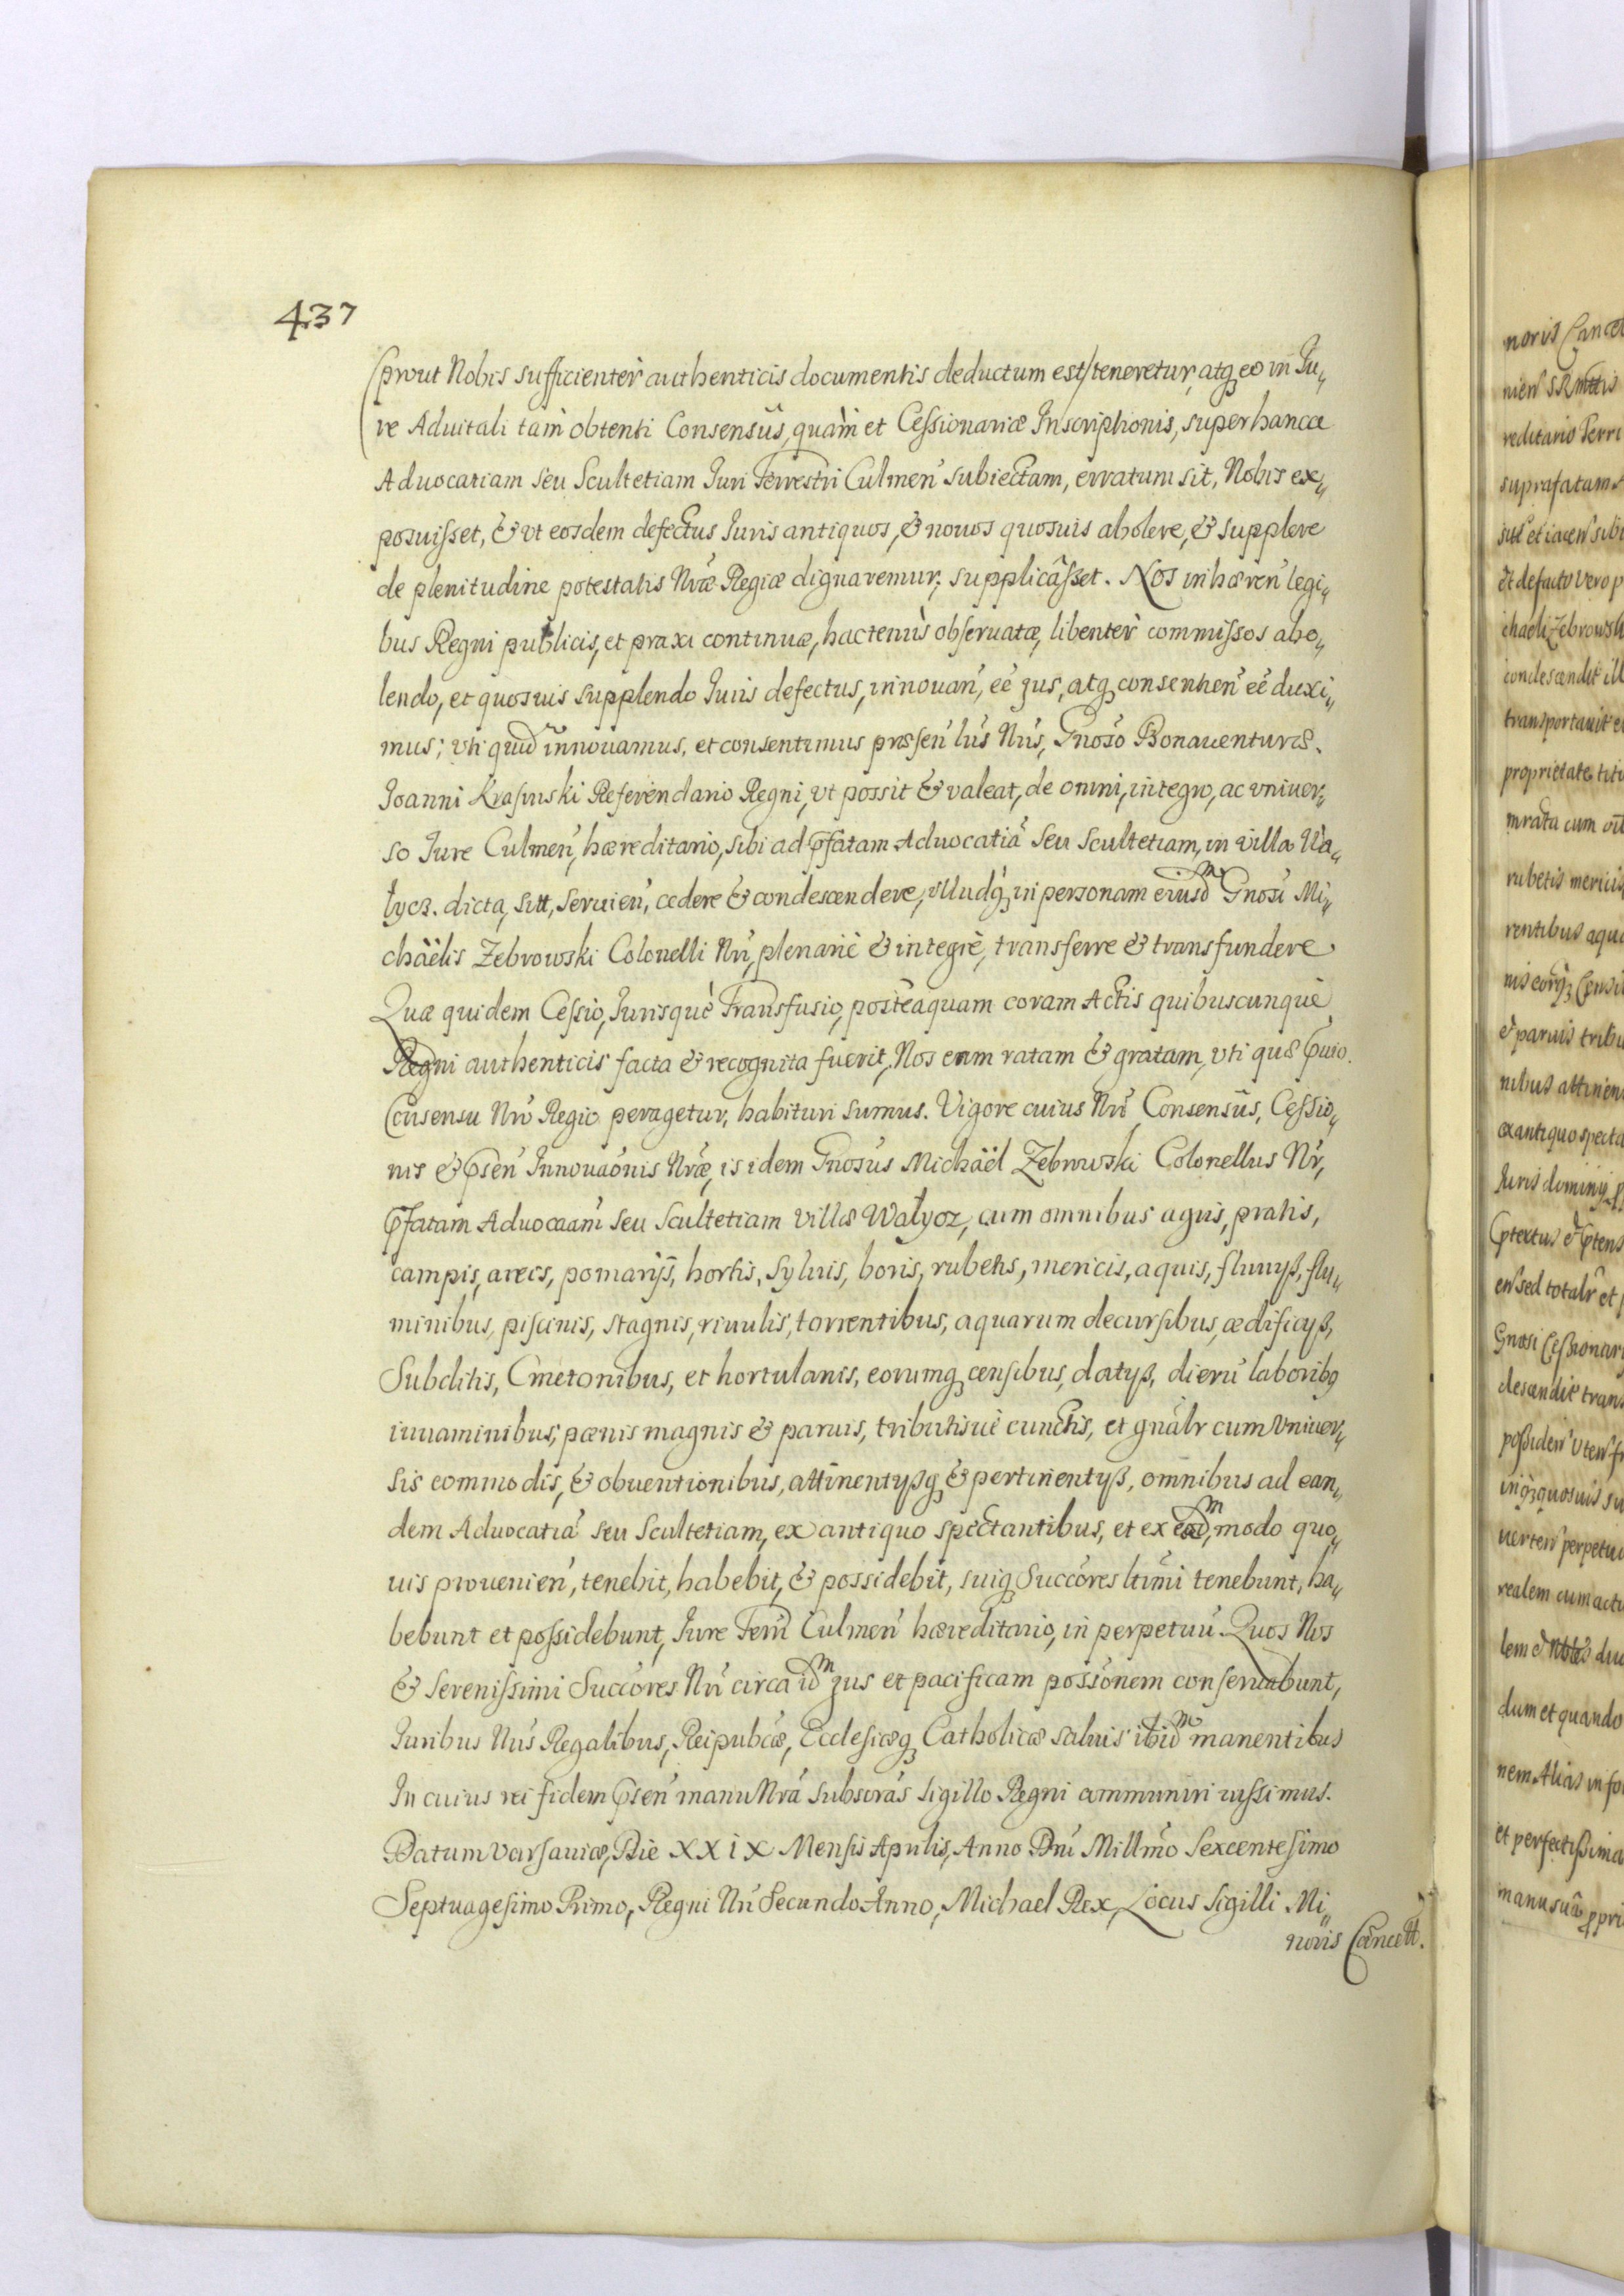 437
(prout Nobis sufficienter authenticis documentis deductum est/teneretur, atq3 eo in Ju„
re Aduitali tàm obtenti Consensûs, quàm et Cessionariæ Inscriptionis, super hance
Aduocatiam seu Scultetiam Juri Terrestri Culmen̄ subiectam, erratum sit, Nobis ex„
posuisset, & vt eosdem defectus Juris antiquos, & nouos quosuis abolere, & supplere
de plenitudine potestatis Nr̄æ Regiæ dignaremur, supplicâsset. Nos inhæren̄ legi„
bus Regni publicis, et praxi continuæ, hactenùs obseruatæ, libentèr commissos abo„
lendo, et quosuis supplendo Juris defectus, innouan̄, eē jus, atq3 consentien̄ eē duxi„
mus; vti quid̄ innouamus, et consentimus præsen̄ lūs Nr̄is, Gnōso Bonauenturæ
Joanni Krasinski Referendario Regni, vt possit & valeat, de omni, integro, ac vniuer„
so Jure Culmen̄, hæreditario, sibi ad p̄fatam Aduocatiā seu Scultetiam, in villa Wa„
łycz. dicta, sitt, seruien̄, cedere & condescendere, illudq3 in personam eiusd̄m Gnōsi Mi„
chäelis Zebrowski Colonelli Nr̄i, plenariè & integrè, transferre & transfundere
Quæ quidem Cessio, Jurisquè Transfusio, posteaquam coram Actis quibuscunquè
Regni authenticis facta & recognita fuerit, Nos eam ratam & gratam, vti quæ p̄uio
Cōnsensu Nr̄o Regio peragetur, habituri sumus. Vigore cuius Nr̄i Consensûs, Cessio„
nis & p̄sen̄ Innouaōnis Nr̄æ, is idem Gnōsus Michäël Zebrowski Colonellus Nr̄,
p̄fatam Aduocaām seu Scultetiam Villæ Wałycz, cum omnibus agris, pratis,
campis, areis, pomarijs, hortis, syluis, boris, rubetis, mericis, aquis, fluuijs, flu„
minibus, piscinis, stagnis, riuulis, torrentibus, aquarum decursibus, ædificijs,
Subditis, Cmetonibus, et hortulanis, eorumq3 censibus, datijs, dierū laborib9
iuuaminibus, pænis magnis & paruis, tributisuè cunctis, et gnālr cum vniuer„
sis commodis, & obuentionibus, attinentijsq3 & pertinentijs, omnibus ad ean„
dem Aduocatiā seu Scultetiam, ex antiquo spectantibus, et ex ead̄m modo quo„
uis prouenien̄, tenebit, habebit, & possidebit, suiq3 Succōres ltīmi tenebunt, ha„
bebunt et possidebunt, Jure Terrī Culmen̄ hæreditario, in perpetuū. Quos Nos
& Serenissimi Succōres Nr̄i circa id̄m jus et pacificam possōnem conseruabunt,
Juribus Nr̄is Regalibus, Reipubcæ, Ecclesiæq3 Catholicæ saluis ibid̄m manentibus
In cuius rei fidem p̄sen̄ manu Nrā subscrās sigillo Regni communiri iussimus.
Datum Varsauiæ, Die XXIX Mensis Aprilis, Anno Dnī Millm̄o Sexcentesimo
Septuagesimo Primo, Regni Nr̄i Secundo Anno, Michael Rex, Locus Sigilli Mi„
noris Cancell.